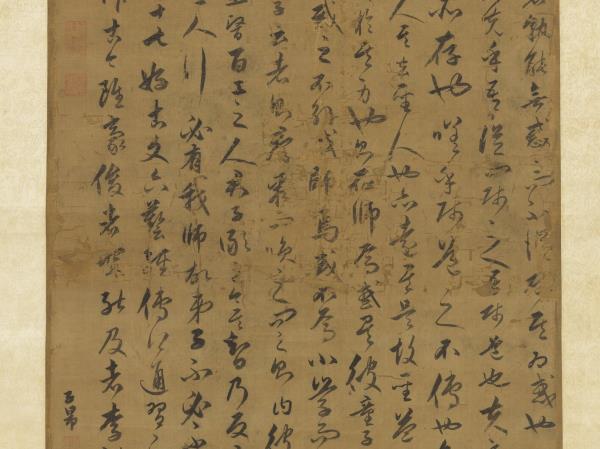 孰能無惑而不從師其為惑也
先乎吾從而師之吾師道也夫
所存也嗟乎師道之不傳也
人其去聖人也亦遠矣是故聖益
於其身也則恥師焉惑矣彼童子
惑之不解或師焉或不焉小學而
子云者則群聚而笑之問之則曰彼
醫百工之人君子今其智乃反
人行必有我師故弟子不必不
十七好古文六藝經傳皆通習
古今雖豪俊者能及者李
子昂